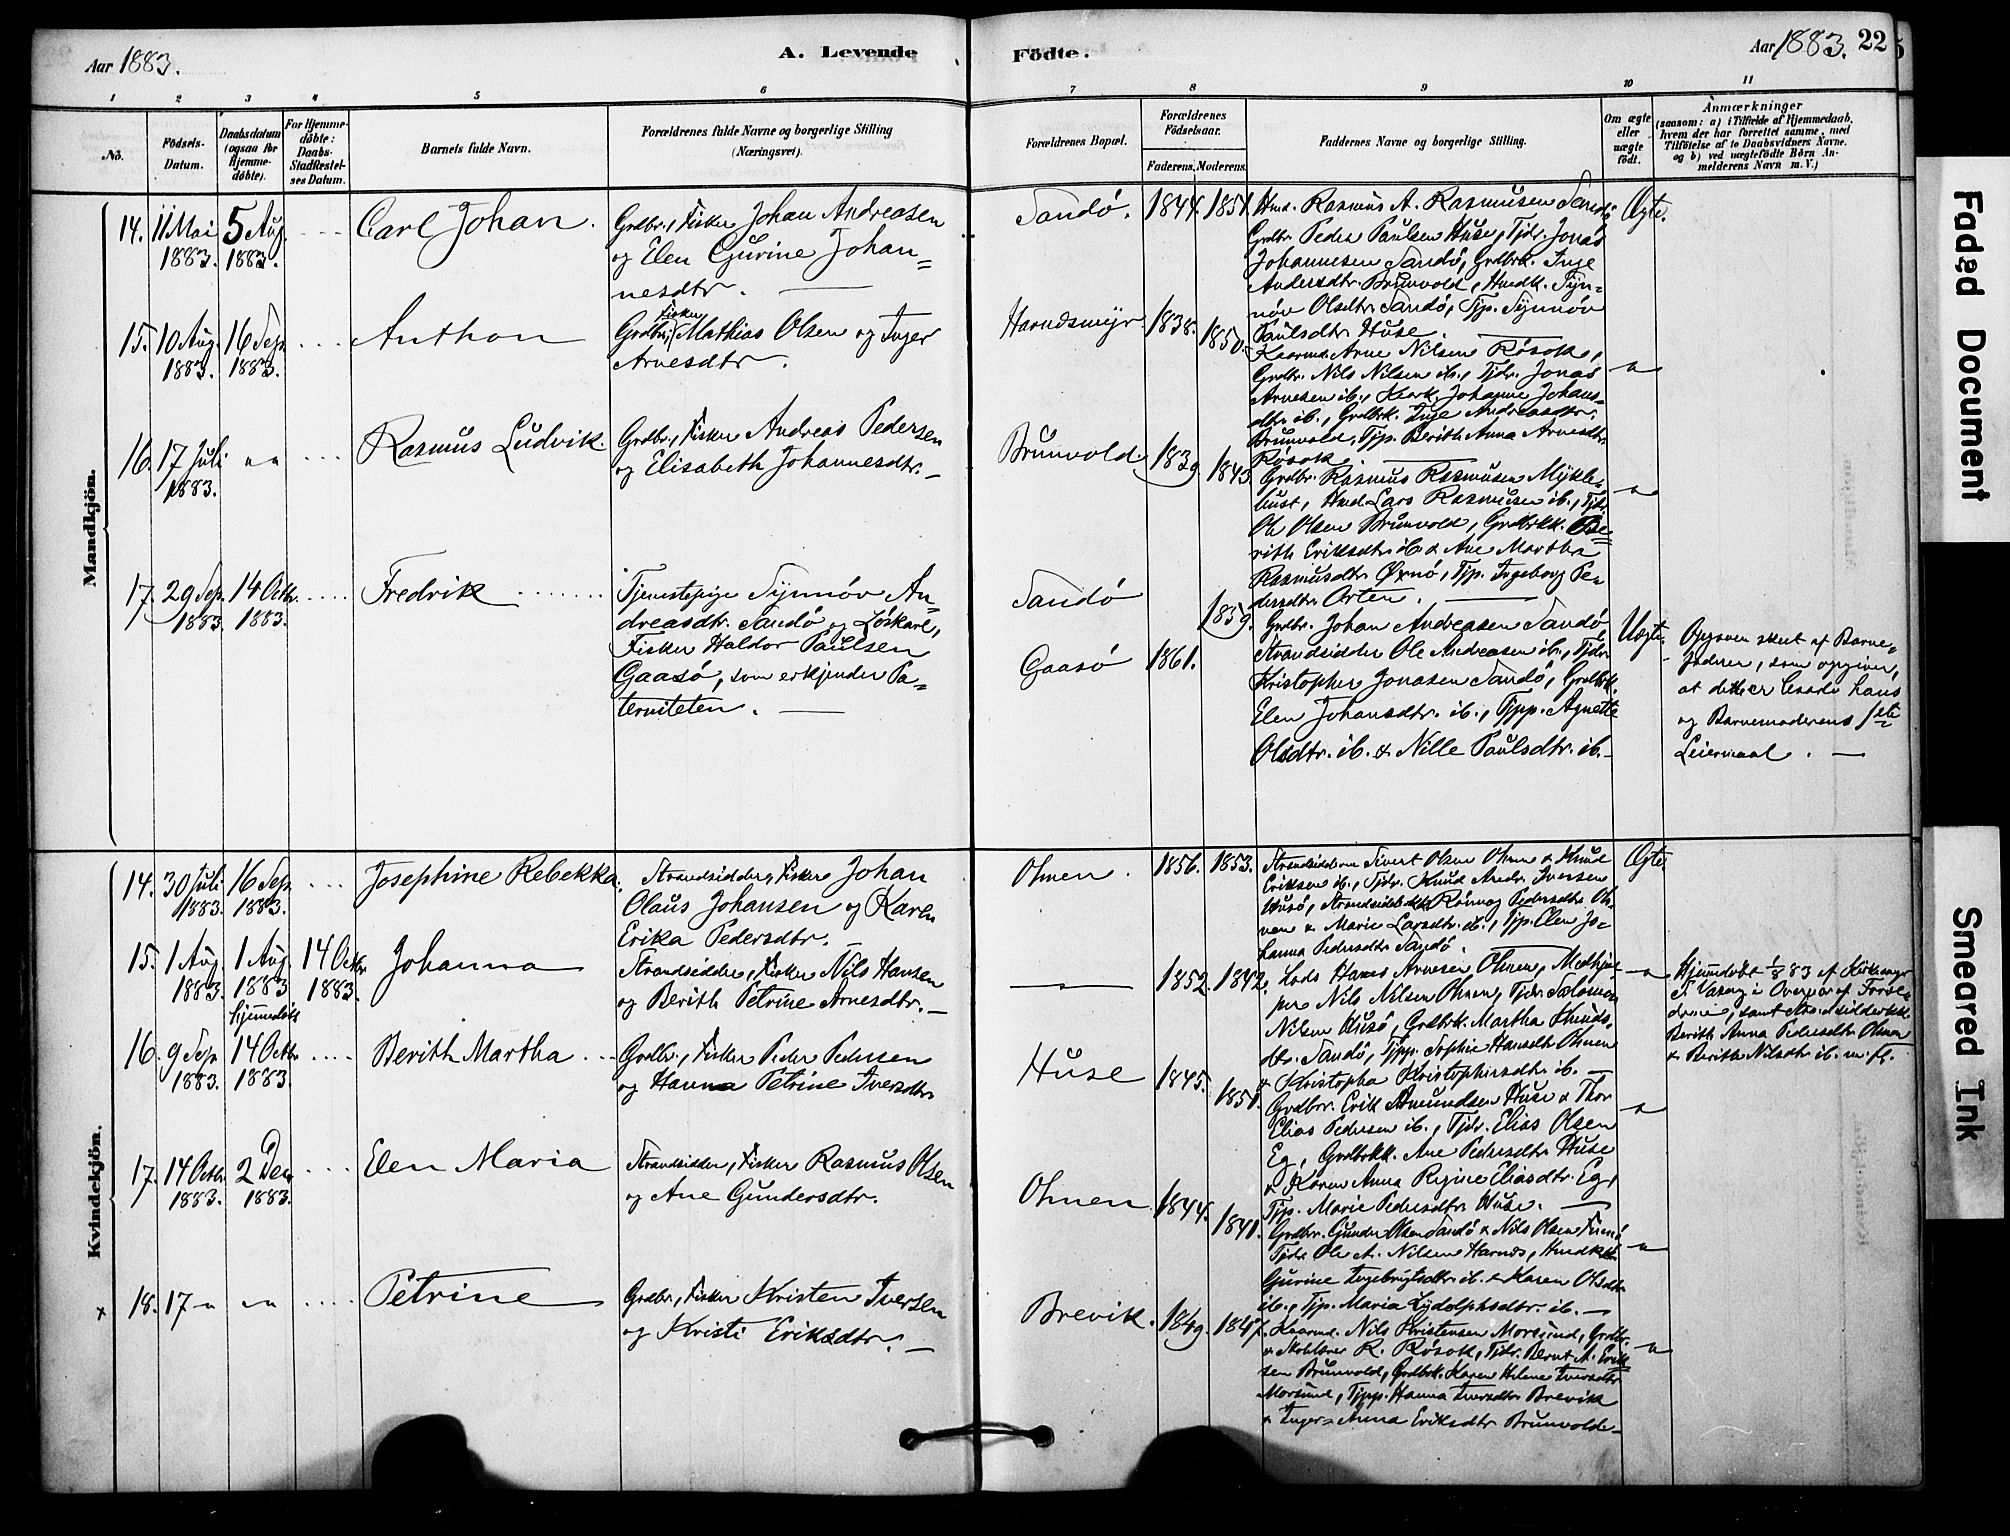 Aar 1883.
A. Levende
Födte.
Aar 1883.
22
1
2
3
4
5
6
7
8
9
10
11
No.
Födsels-
Datum.
Daabsdatum
(ogsaa for
Hjemme-
döbte).
For Hjemme-
döbte:
Daabs-
Stadfæstel-
ses Datum.
Barnets fulde Navn.
Forældrenes fulde Navne og borgerlige Stilling
(Næringsvei).
Forældrenes Bopæl.
Forældrenes
Födselsaar.
Faderens.
Moderens.
Faddernes Navne og borgerlige Stilling.
Om ægte
eller
uægte
födt.
Anmærkninger
(saasom: a) i Tilfælde af Hjemmedaab,
hvem der har forrettet samme, med
Tilföielse af to Daabsvidners Navne,
og b) ved uægtefödte Börn An-
melderens Navn m.V.)
Mandkjön.
14.
11 Mai
1883.
5 Aug.
1883.
Carl Johan.
Grdbr., Fisker Johan Andreasen
og Elen Gurine Johan=
nesdtr.
Sandö.
1844.
1851.
Hmd. Rasmus A. Rasmusen Sandö
Grdbr. Peder Paulsen Huse, Tjdr. Jonas
Johannesen Sandö, Grdbrk. Inge
Andersdtr. Brunvold, Hmdk. Syn-
növ Olsdtr. Sandö, Tjp. Synnöv
Paulsdtr. Huse.
Ægte.
15.
10 Aug.
1883.
16 Sep.
1883.
Anthon
Grdbr., Fisker Mathias Olsen og Inger
Arnesdtr.
Harndsmyr
1838.
1850.
Kaarmd. Arne Nilsen Rösok,
Grdbr. Nils Nilsen ib., Tjdr. Jonas
Arnesen ib., Kaark. Johanne Johans-
dtr. ib., Grdbrk. Inge Andreasdtr.
Brunvold, Tjp. Berith Anna Arnesdtr.
Rösok.
16.
17 Juli
1883.
Rasmus Ludvik.
Grdbr., Fisker Andreas Pedersen
og Elisabeth Johannesdtr.
Brunvold.
1839
1843.
Grdbr. Rasmus Rasmusen Mykle-
bust, Hmd. Lars Rasmusen ib., Tjdr.
Ole Olsen Brunvold, Grdbrkk. Be=
rith Eriksdtr. ib. & Ane Martha
Rasmusdtr. Oxnö, Tjp. Ingeborg Pe-
dersdtr. Orten.
17.
29 Sep.
1883.
14 Octbr.
1883.
Fredrik
Tjenestepige Synnöv An-
dreasdtr. Sandö og Löskarl,
Fisker Haldor Paulsen
Gaasö, som erkjender Pa=
terniteten.
Sandö
Gaasö
1859.
1861.
Grdbr. Johan Andreasen Sandö
Strandsidder Ole Andreasen ib., Tjdr.
Kristopher Jonasen Sandö, Grdbrk.
Elen Johansdtr. ib., Tjpp. Agnette
Olsdtr. ib. & Nille Paulsdtr. ib.
Uægte.
Opgaven skeet af Barne-
faderen, som opgiver,
at dette er baade hans
og Barnemoderens 1ste
Leiermaal.
Kvindekjön.
14.
30 Juli
1883.
16 Sep.
1883.
Josephine Rebekka.
Strandsidder, Fisker Johan
Olaus Johansen og Karen
Erika Pedersdtr.
Ohnen.
1856.
1853.
Strandsidderne Sivert Olsen Ohnen & Knud
Eriksen ib., Tjdr. Knud Andr. Iversen
Husö, Strandsidderkk. Rönnog Pedersdtr. Oh-
nen & Marie Larsdtr. ib., Tjp. Elen Jo-
hanna Pedersdtr. Sandö.
Ægte.
15.
1 Aug.
1883
1 Aug.
1883
hjemmedöbt
14 Octbr.
1883.
Johanna
Strandsidder, Fisker Nils Hansen
og Berith Petrine Arnesdtr.
1852.
1842.
Lods Hans Arnesen Ohnen, Medhjæl-
per Nils Nilsen Ohnen, Tjdr. Salomon
Nilsen Husö, Grdbrk. Martha Knuds-
dtr. Sandö, Tjpp. Sophie Hansdtr. Ohnen
& Kristopha Kristophersdtr. ib.
Hjemmedöbt 1/8 83 af Kirkesanger
Berith Anna Pedersdtr. Ohnen
& Berith Nilsdtr. ib. m. fl.
16.
9 Sep.
1883.
14 Octbr.
1883.
Berith Martha
Grdbr., Fisker Peder Pedersen
og Hanna Petrine Iversdtr.
Huse
1845.
1851.
Grdbrr. Erik Amundsen Huse & Thor
Elias Pedersen ib., Tjdr. Elias Olsen
Eg, Grdbrkk. Ane Pedersdtr. Huse
& Karen Anna Regine Eliasdtr. Eg,
Tjp. Marie Pedersdtr. Huse.
17.
14 Octbr.
1883.
2 Dec.
1883.
Elen Maria
Strandsidder, Fisker Rasmus Olsen
og Ane Gundersdtr.
Ohnen
1844.
1841.
Grdbrr. Gunder Olsen Sandö & Nils Olsen
Tjdr. Ole A. Nilsen Harnæs, Hmdkk.
Gurine Ingebrigtsdtr. ib. & Karen Olsdtr.
ib., Tjp. Maria Lydolphsdtr. ib.
x
18.
17
Petrine
Grdbr., Fisker Kristen Iversen
og Kristi Eriksdtr.
Brevik.
1849.
1847.
Kaarmd. Nils Kristensen Morsund, Grdbr.
& Skolelærer R. Rösok, Tjdr. Bernt A. Erik-
sen Brunvold, Grdbrk. Karen Helene Iversdtr.
Morsund, Tjpp. Hanna Iversdtr. Brevik
& Inger Anna Eriksdtr. Brunvold
Faded Document
Smeared Ink